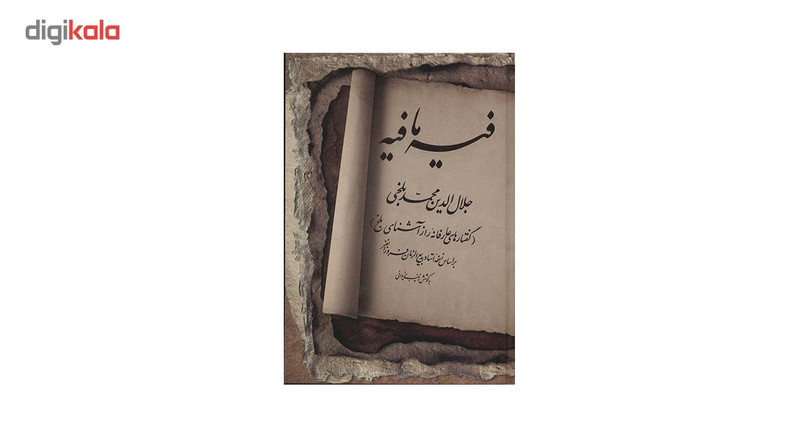 digikala
فیه ما فیه
جلال الدین محمد بلخی
(گفتارهای عارفانه راز آشنای بلخ)
بر اساس نسخه استاد بدیع الزمان فروزانفر
به کوشش